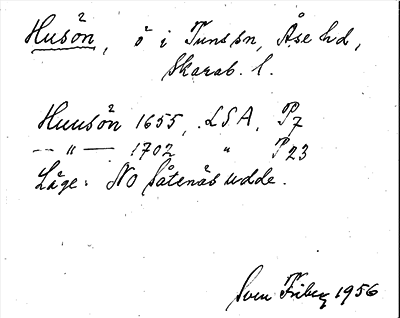 Husön, ö i Tunssn, Åse hd,
Skarab. l.
Huusön 1655, LSA, P7
— " — 1702 " P23
Läge: NO Såtenäs udde.
Sven Friberg 1956